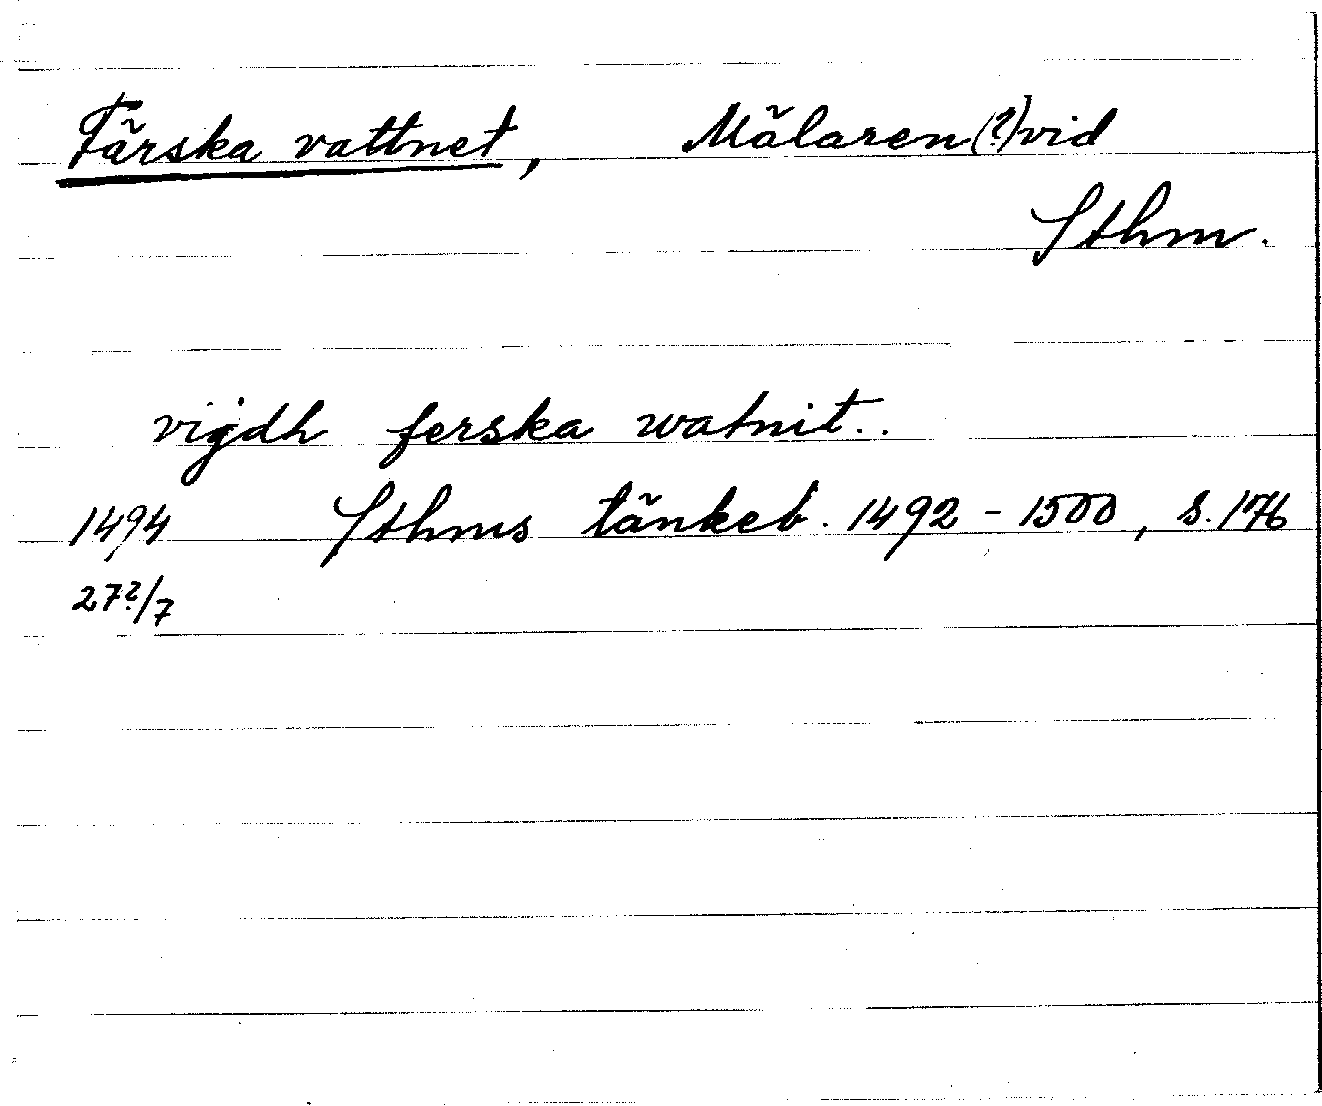 Färska vattnet, Mälaren(?)vid
Sthm.
vijdh ferska watnit..
1494 Sthms tänkeb. 1492 - 1500, s. 176
27?/7